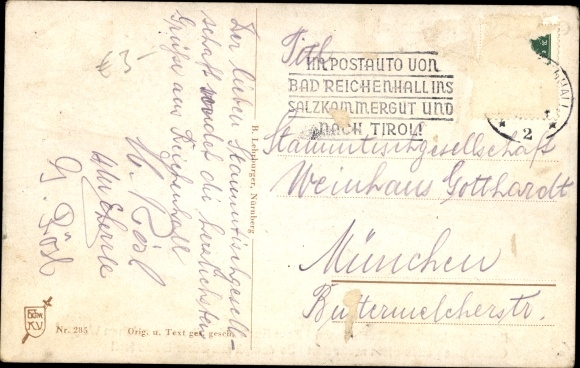 Der lieben Stammtischgesell-
schaft sendet die herzlichsten
Grüße aus Reichenhall
B. Lehrburger, Nürnberg
Nr. 285 Orig. u. Text ges. gesch.
IM POSTAUTO VON
BAD REICHENHALL INS
SALZKAMMERGUT UND
NACH TIROL!
2
Stammtischgesellschaft
Weinhaus Gotthardt
München
Buttermelcherstr.